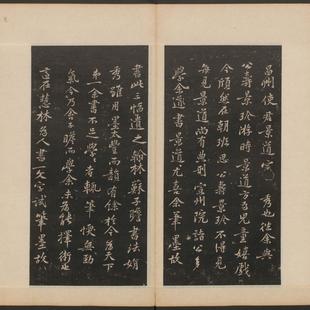 昌州使君景道宗秀也往余與
公壽景珍游時景道方為兒童嬉戲
今頎然在朝班思公壽景珍不得見
每見景道尚有典刑宣州院諸公多
學余書景道尤喜余筆墨故
書此三幅遺之翰林蘇子瞻書法娟
秀雖用墨太豐而韻有餘於今為天下
第一余書不足學學者輒筆愞無勁
氣今乃舍子瞻而學余未為能擇術也
適在慧林為人書一文字試筆墨故